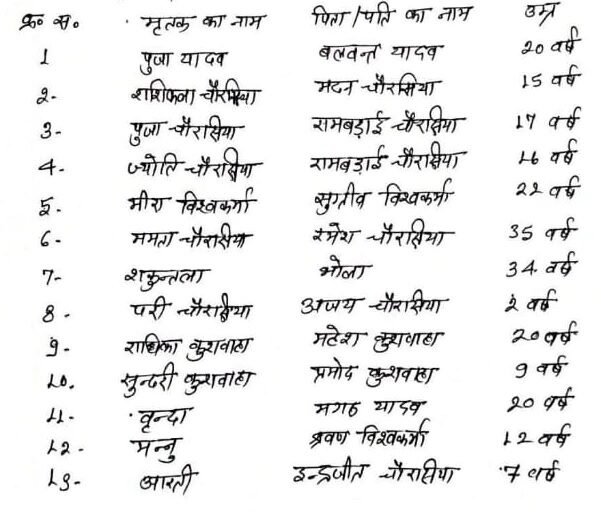 क्र० स०. मृतक का नाम पिता/पति का नाम उम्र
1 पुजा यादव बलवन्त यादव 20 वर्ष
2- शशिकला चौरसिया मदन चौरसिया 15 वर्ष
3- पुजा चौरसिया रामबड़ाई चौरसिया 17 वर्ष
4- ज्योति चौरसिया रामबड़ाई चौरसिया 16 वर्ष
5- मीरा विश्वकर्मा सुग्रीव विश्वकर्मा 22 वर्ष
6- ममता चौरसिया रमेश चौरसिया 35 वर्ष
7- शकुन्तला भोला 34 वर्ष
8- परी चौरसिया अजय चौरसिया 2 वर्ष
9- राधिका कुशवाहा महेश कुशवाहा 20 वर्ष
10. सुन्दरी कुशवाहा प्रमोद कुशवाहा 9 वर्ष
11- वृन्दा यादव 20 वर्ष
12- मन्नु श्रवण विश्वकर्मा 12 वर्ष
13- आरती इन्द्रजीत चौरासिया 7 वर्ष